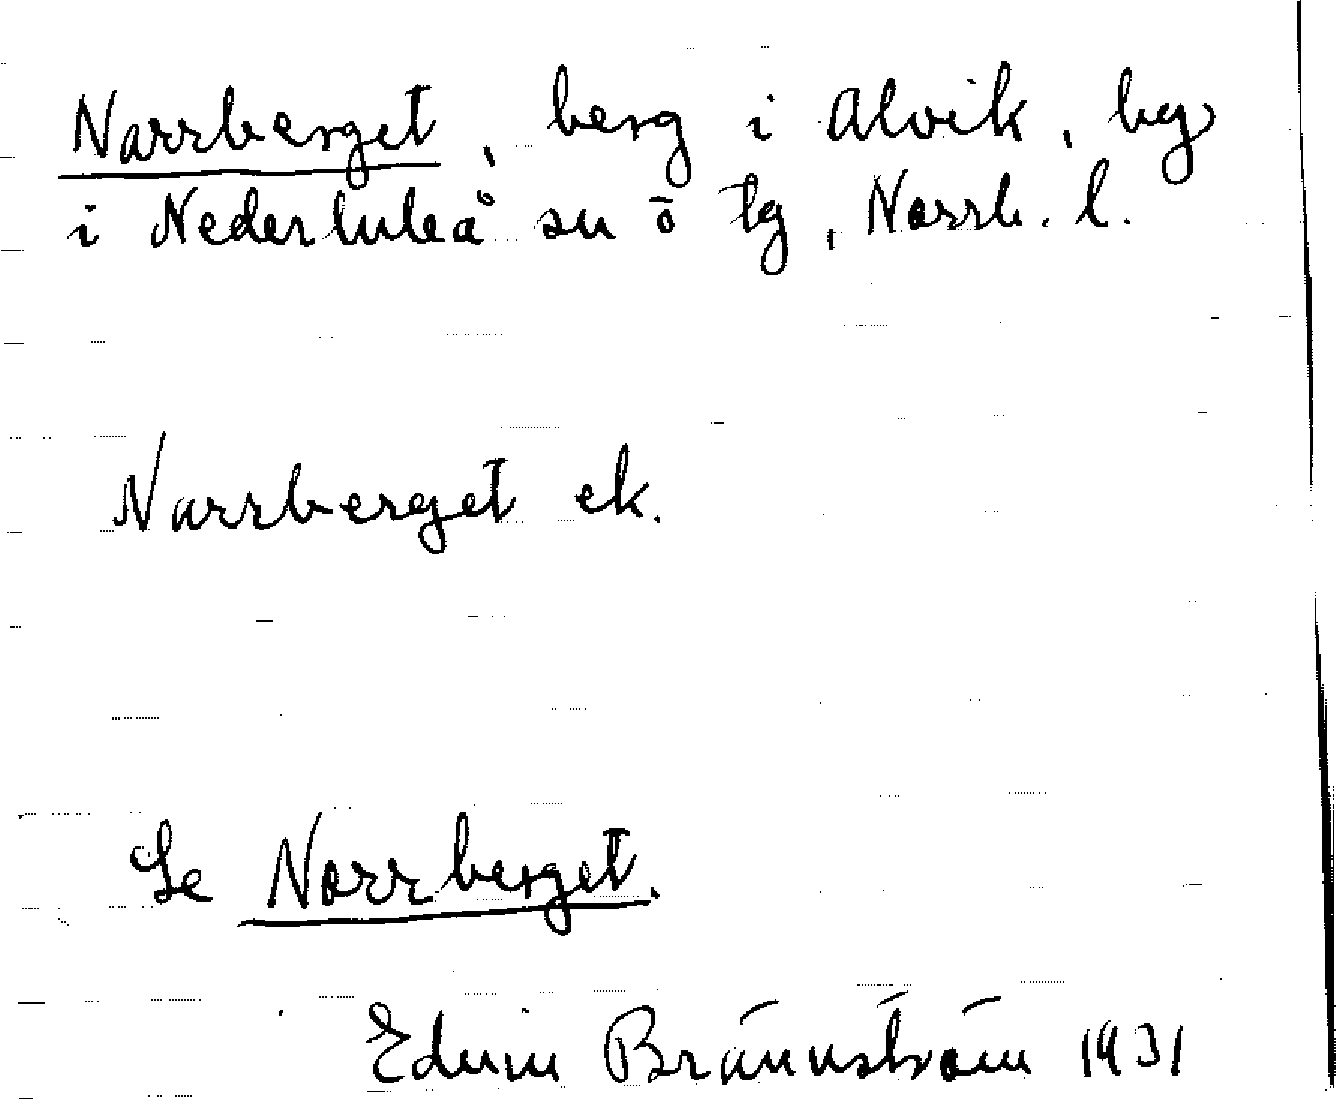 Narrberget, berg i Alvik, by
i Nederluleå sn ö tg, Norrb. l.
Narrberget ek.
Se Norrberget.
Edvin Brännström 1931